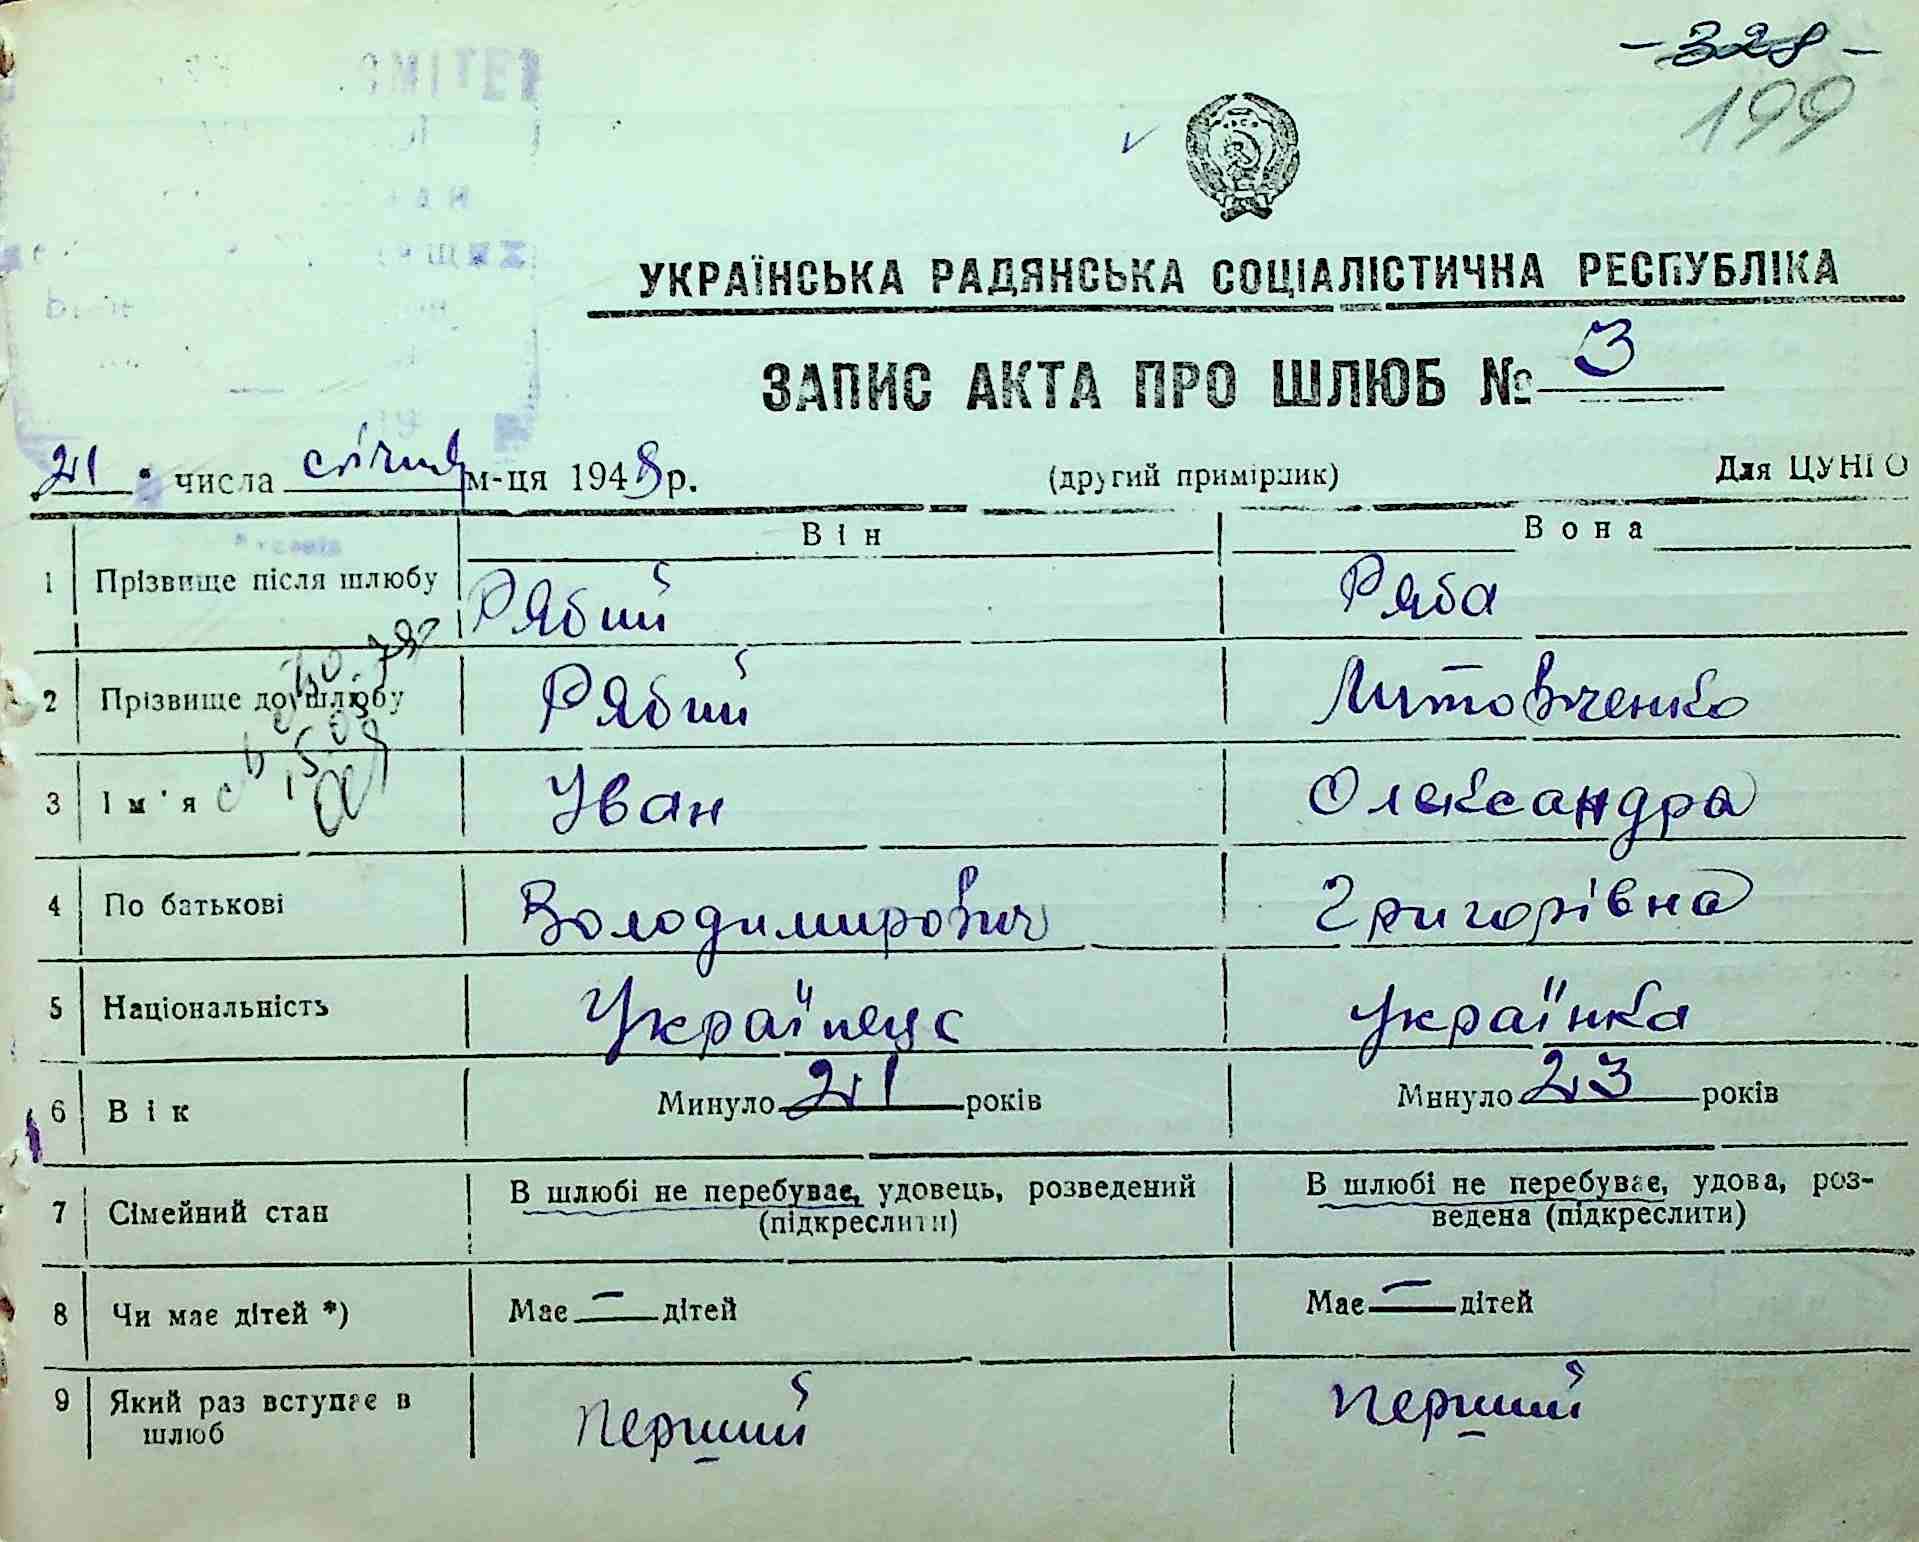 - 328 -
199
УКРАЇНСЬКА РАДЯНСЬКА СОЦІАЛІСТИЧНА РЕСПУБЛІКА
ЗАПИС АКТА ПРО ШЛЮБ № 3
21 числа січня м-ця 1948 р. (другий примірник) Для ЦУНГО
Він Вона
1 Прізвище після шлюбу Рябий Ряба
2 Прізвище до шлюбу Рябий Литовченко
3 Ім'я Іван Олександра
4 По батькові Володимирович Григорівна
5 Національність Українець Українка
6 Вік Минуло 21 років Минуло 23 років
7 Сімейний стан В шлюбі не перебуває, удовець, розведений (підкреслити) В шлюбі не перебуває, удова, роз-
ведена (підкреслити)
8 Чи має дітей *) Має — дітей Має — дітей
9 Який раз вступає в перший перший
шлюб